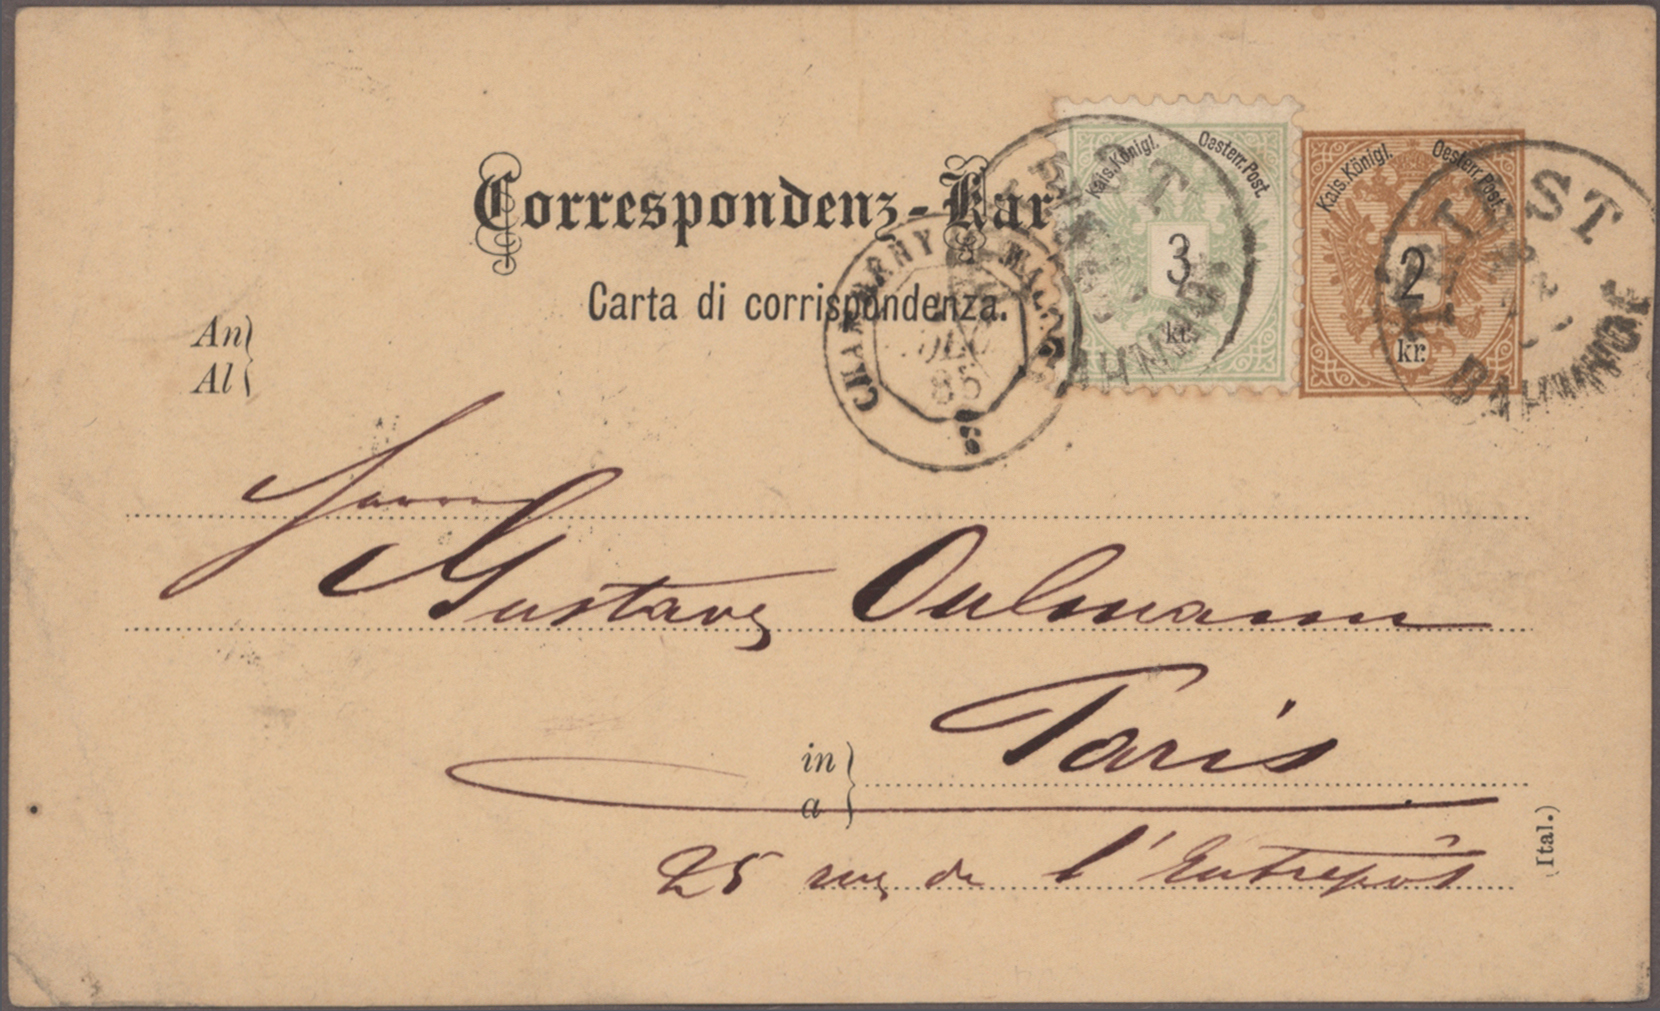 Correspondenz-Kar
Carta di corrispondenza.
Kais. Königl. Oesterr. Post.
3
kr.
Kais. Königl. Oesterr. Post.
2
kr.
TRIEST
BAHNHOF
TRIEST
BAHNHOF
CHAMBERY
85
An
Al
Herrn
Gustave Oulmann
in
a
Paris
25 rue de l'Entrepôt
(Ital.)